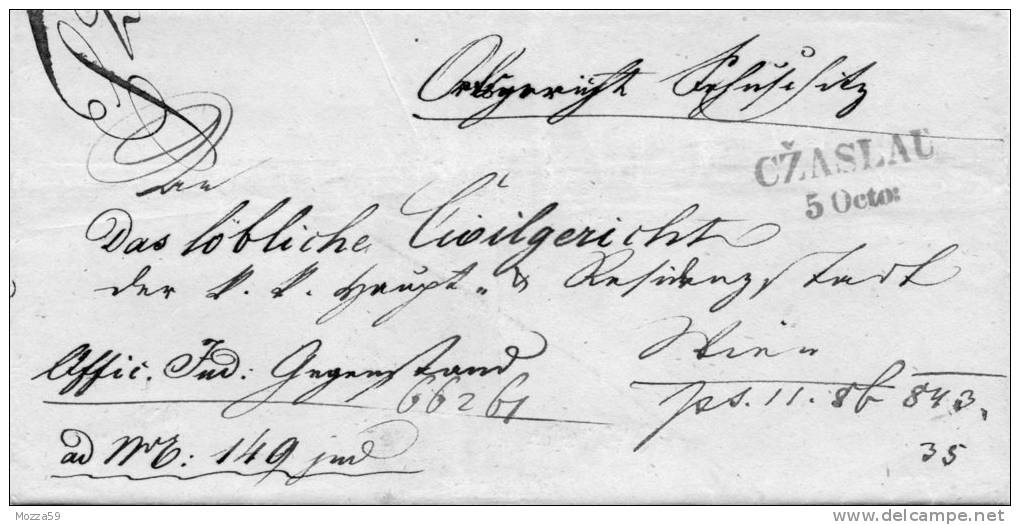 Ortsgericht Sehuschitz
CŽASLAU
5 Octo:
An
Das löbliche Civilgericht
der k. k. Haupt- & Residenzstadt
Wien
Offic. Jud: Gegenstand
66261
ps. 11. 8b 843.
35
ad NrE: 149 jud
Mozza59
www.delcampe.net